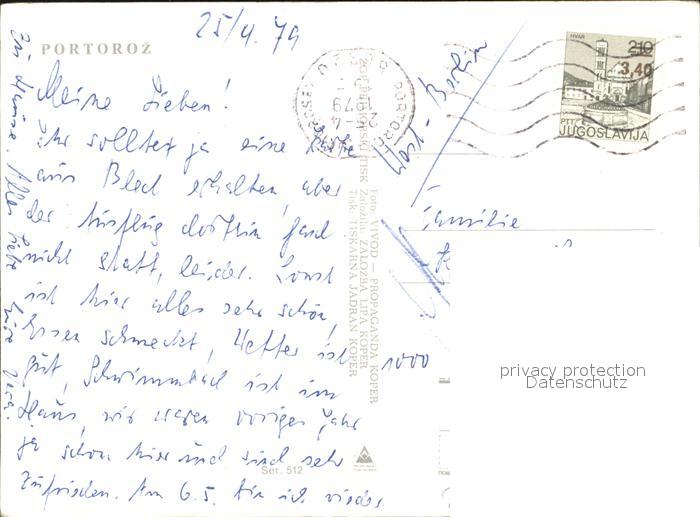 25/4. 79
PORTOROŽ
Meine Lieben!
Ihr solltet ja eine Karte
aus Bled erhalten, aber
der Ausflug dorthin fand
nicht statt, leider. Sonst
ist hier alles sehr schön,
Essen schmeckt, Wetter ist
gut, Schwimmbad ist im
Haus, wir waren voriges Jahr
ja schon hier und sind sehr
zufrieden. Am 6.5. bin ich wieder
zu Hause. Alles Liebe
Ser. 512
Foto: VIVOD — PROPAGANDA KOPER
Založila: ZALOŽBA LIPA KOPER
Tisk: TISKARNA JADRAN KOPER
PORTOROŽ
79
HVAR
2,10
3,40
PTT
JUGOSLAVIJA
Familie
1000
Berlin
privacy protection
Datenschutz